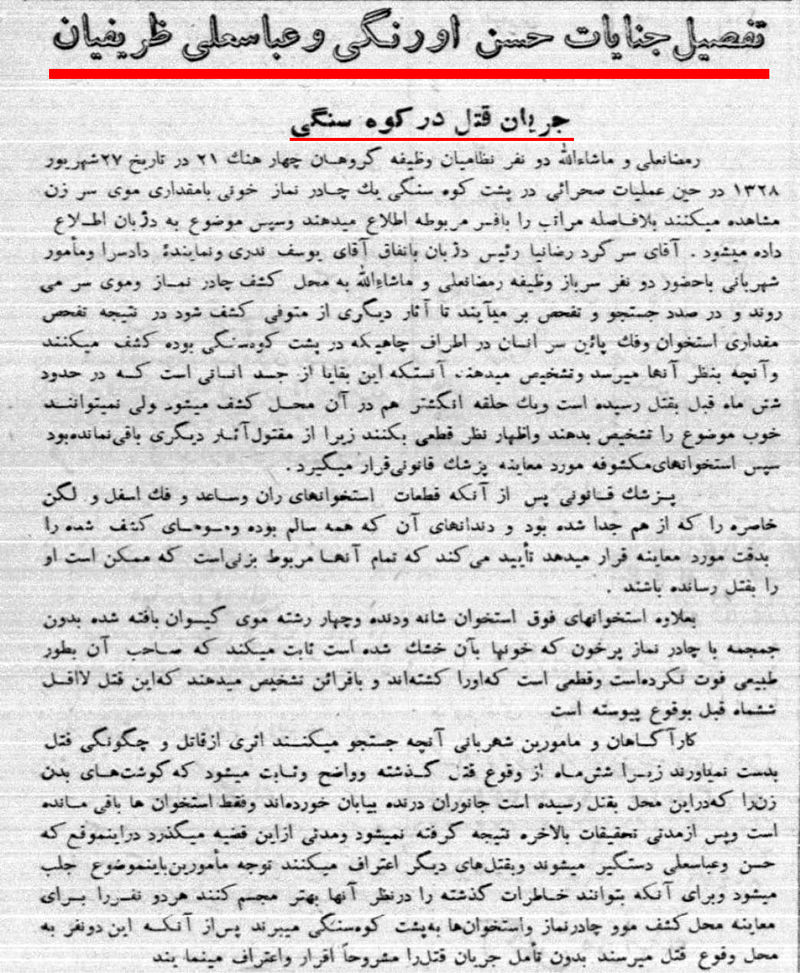 تفصیل جنایات حسن اورنگی و عباسعلی ظریفیان
جریان قتل در کوه سنگی
رمضانعلی و ماشاءالله دو نفر نظامیان وظیفه گروهان چهار هنك ۲۱ در تاریخ ۲۷شهریور
۱۳۲۸ در حین عملیات صحرائی در پشت کوه سنگی یك چادر نماز خونی بامقداری موی سر زن
مشاهده میکنند بلافاصله مراتب را بافسر مربوطه اطلاع میدهند وسپس موضوع به دژبان اطلاع
داده میشود . آقای سرگرد رضانیا رئیس دژبان باتفاق آقای یوسف ندری ونمایندهٔ دادسرا ومأمور
شهربانی باحضور دو نفر سرباز وظیفه رمضانعلی و ماشاءالله به محل کشف چادر نماز وموی سر می
روند و در صدد جستجو و تفحص بر میآیند تا آثار دیگری از متوفی کشف شود در نتیجه تفحص
مقداری استخوان وفك پائین سر انسان در اطراف چاهیکه در پشت کوه‌سنگی بوده کشف میکنند
وآنچه بنظر آنها میرسد وتشخیص میدهند آنستکه این بقایا از جسد انسانی است که در حدود
شش ماه قبل بقتل رسیده است ویك حلقه انگشتر هم در آن محل کشف میشود ولی نمیتوانند
خوب موضوع را تشخیص بدهند واظهار نظر قطعی بکنند زیرا از مقتول‌آثار دیگری باقی‌نمانده‌بود
سپس استخوانهای‌مکشوفه مورد معاینه پزشك قانونی‌قرار میگیرد .
پزشك قانونی پس از آنکه قطعات استخوانهای ران وساعد و فك اسفل و لگن
خاصره را که از هم جدا شده بود و دندانهای آن که همه سالم بوده وموهای کشف شده را
بدقت مورد معاینه قرار میدهد تأیید می‌کند که تمام آنها مربوط بزنی‌است که ممکن است او
را بقتل رسانده باشند .
بعلاوه استخوانهای فوق استخوان شانه ودنده وچهار رشته موی گیسوان یافته شده بدون
جمجمه با چادر نماز پرخون که خونها بآن خشك شده است ثابت میکند که صاحب آن بطور
طبیعی فوت نکرده‌است وقطعی است که‌اورا کشته‌اند و باقرائن تشخیص میدهند که‌این قتل لااقل
ششماه قبل بوقوع پیوسته است
کارآگاهان و مامورین شهربانی آنچه جستجو میکنند اثری ازقاتل و چگونگی قتل
بدست نمیاورند زیرا شش‌ماه از وقوع قتل گذشته وواضح وثابت میشود که‌گوشت‌های بدن
زن‌را که‌دراین محل بقتل رسیده است جانوران درنده بیابان خورده‌اند وفقط استخوان ها باقی مانده
است وپس ازمدتی تحقیقات بالاخره نتیجه گرفته نمیشود ومدتی ازاین قضیه میگذرد دراینموقع که
حسن وعباسعلی دستگیر میشوند وبقتل‌های دیگر اعتراف میکنند توجه مأمورین‌باینموضوع جلب
میشود وبرای آنکه بتوانند خاطرات گذشته را درنظر آنها بهتر مجسم‌کنند هردو نفررا برای
معاینه محل‌کشف موو چادرنماز واستخوان‌ها به‌پشت کوه‌سنگی میبرند پس‌از آنکه این دونفر به
محل وقوع قتل میرسند بدون تأمل جریان قتل‌را مشروحاً اقرار واعتراف مینما یند